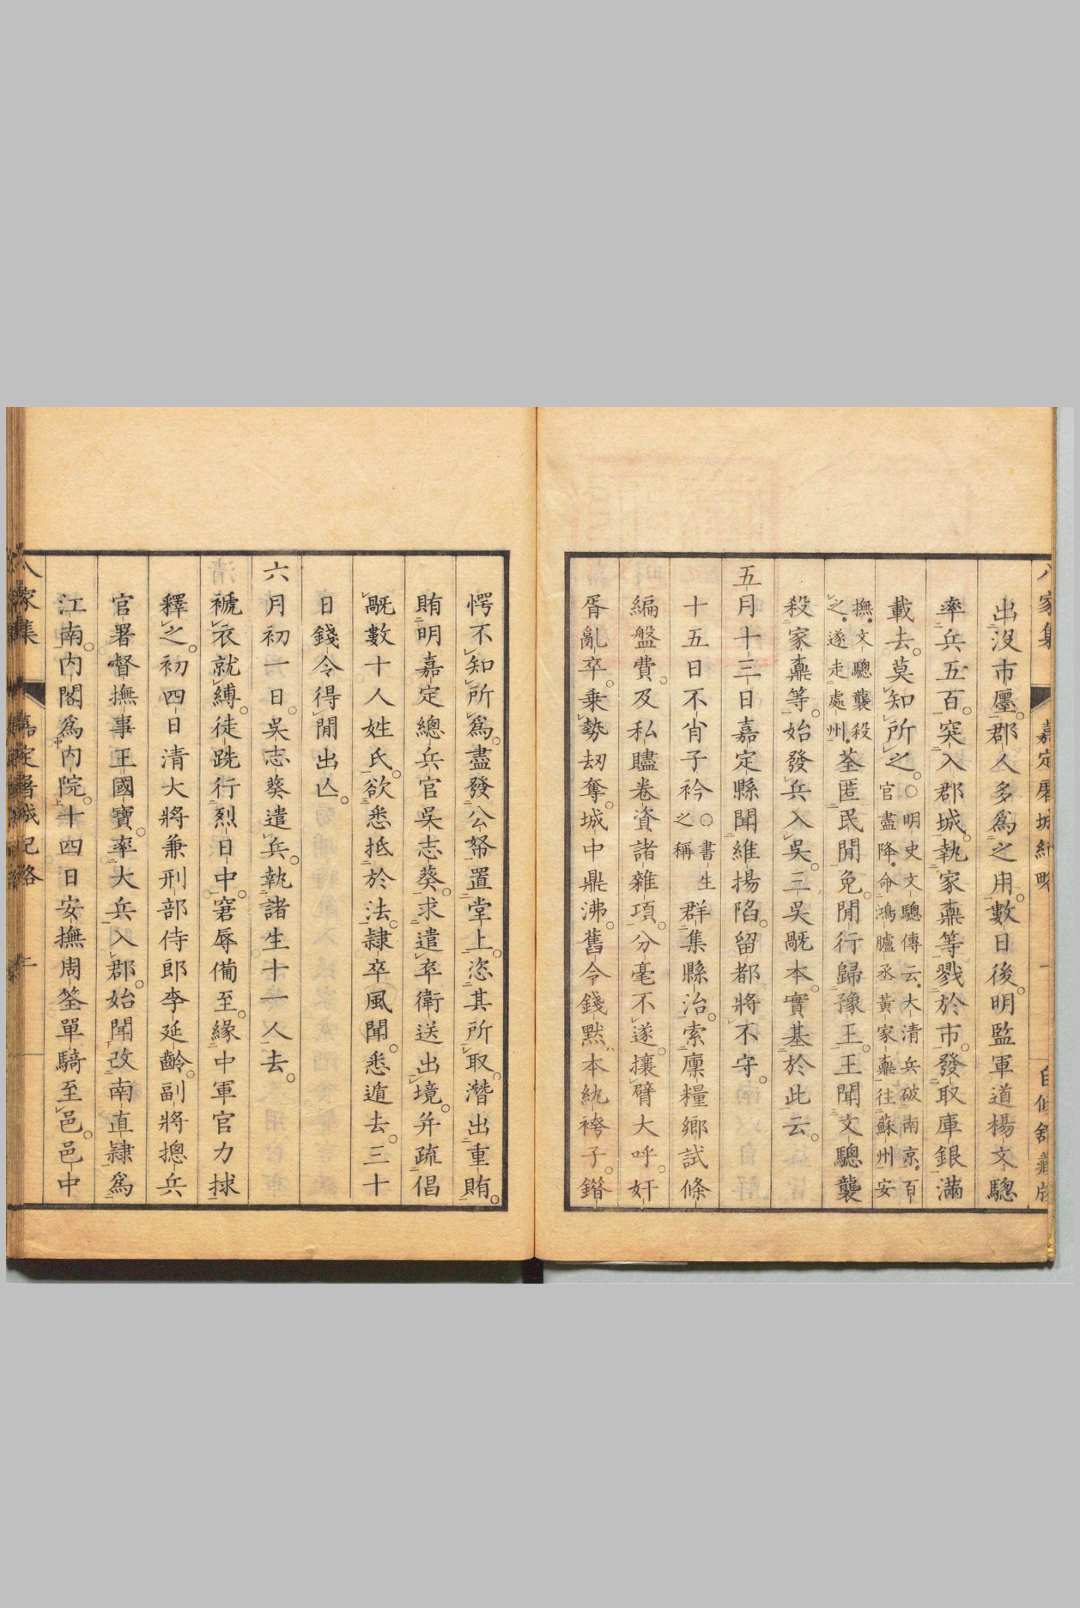 出沒市廛郡人多爲之用數日後明監軍道楊文驄
率兵五百突入郡城執家鼒等戮於市發取庫銀滿
載去莫知所之○明史文驄傳云大清兵破南京百
官盡降命鴻臚丞黃家鼒往蘇州安
撫文驄襲殺
之遂走處州荃匿民間免間行歸豫王王聞文驄襲
殺家鼒等始發兵入吳三吳亂本實基於此云
五月十三日嘉定縣聞維揚陷留都將不守
十五日不肖子衿○書生
之稱群集縣治索廩糧鄉試條
編盤費及私贐卷資諸雜項分毫不遂攘臂大呼奸
胥亂卒乗勢刧奪城中鼎沸舊令錢默本紈袴子錯
愕不知所爲盡發公帑置堂上恣其所取潛出重賄
賄明嘉定總兵官吳志葵求遣卒衛送出境并疏倡
亂數十人姓氏欲悉抵於法隸卒風聞悉遁去三十
日錢令得間出亾
六月初一日吳志葵遣兵執諸生十一人去
褫衣就縛徒跣行烈日中窘辱備至緣中軍官力捄
釋之初四日清大將兼刑部侍郎李延齡副將摠兵
官署督撫事王國寶率大兵入郡始聞改南直隸爲
江南內閣爲內院十四日安撫周荃單騎至邑邑中
八家集
嘉定屠城紀略